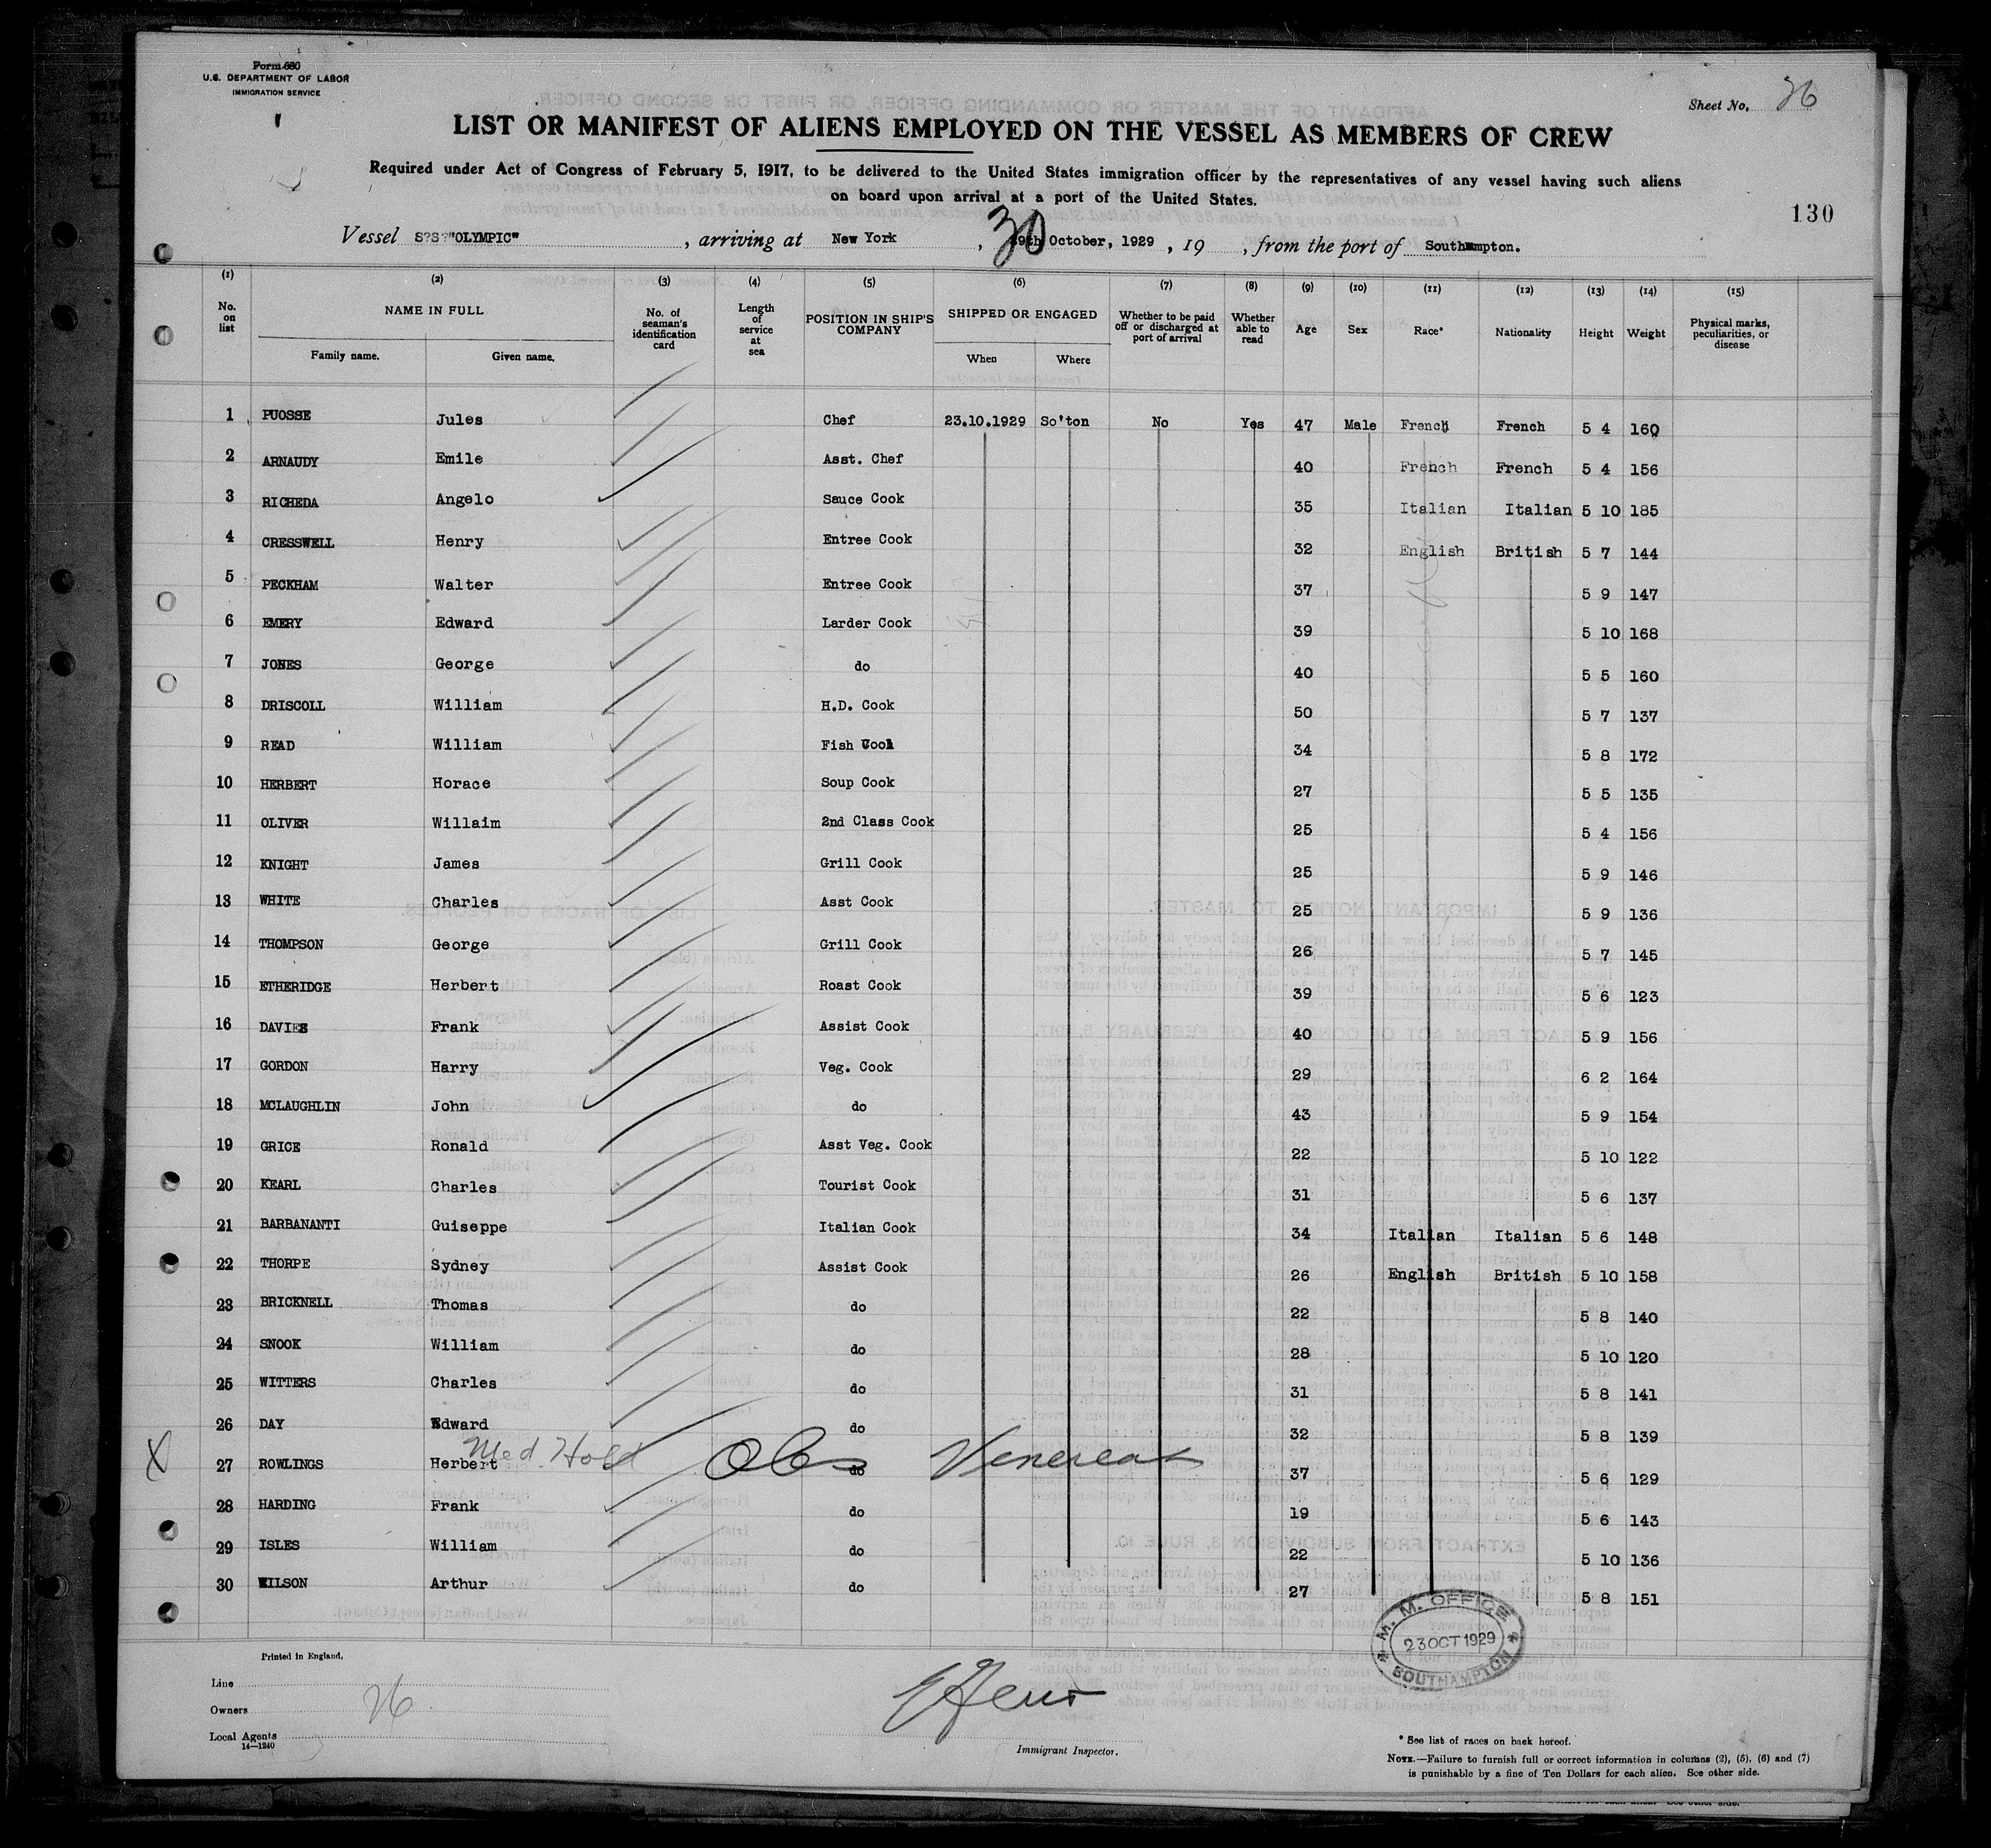 Form 680
U.S. DEPARTMENT OF LABOR
IMMIGRATION SERVICE
Sheet No. 26
LIST OR MANIFEST OF ALIENS EMPLOYED ON THE VESSEL AS MEMBERS OF CREW
Required under Act of Congress of February 5, 1917, to be delivered to the United States immigration officer by the representatives of any vessel having such aliens
on board upon arrival at a port of the United States.
130
Vessel S?S?"OLYMPIC" , arriving at New York , 30 October, 1929 , 19 , from the port of Southampton.
(1) (2) (3) (4) (5) (6) (7) (8) (9) (10) (11) (12) (13) (14) (15)
No. on list NAME IN FULL Family name. Given name. No. of seaman's identification card Length of service at sea POSITION IN SHIP'S COMPANY SHIPPED OR ENGAGED When Where Whether to be paid off or discharged at port of arrival Whether able to read Age Sex Race* Nationality Height Weight Physical marks, peculiarities, or disease
1 PUOSSE Jules Chef 23.10.1929 So'ton No Yes 47 Male French French 5 4 160
2 ARNAUDY Emile Asst. Chef 40 French French 5 4 156
3 RICHEDA Angelo Sauce Cook 35 Italian Italian 5 10 185
4 CRESSWELL Henry Entree Cook 32 English British 5 7 144
5 PECKHAM Walter Entree Cook 37 5 9 147
6 EMERY Edward Larder Cook 39 5 10 168
7 JONES George do 40 5 5 160
8 DRISCOLL William H.D. Cook 50 5 7 137
9 READ William Fish Cook 34 5 8 172
10 HERBERT Horace Soup Cook 27 5 5 135
11 OLIVER Willaim 2nd Class Cook 25 5 4 156
12 KNIGHT James Grill Cook 25 5 9 146
13 WHITE Charles Asst Cook 25 5 9 136
14 THOMPSON George Grill Cook 26 5 7 145
15 ETHERIDGE Herbert Roast Cook 39 5 6 123
16 DAVIES Frank Assist Cook 40 5 9 156
17 GORDON Harry Veg. Cook 29 6 2 164
18 MCLAUGHLIN John do 43 5 9 154
19 GRICE Ronald Asst Veg. Cook 22 5 10 122
20 KEARL Charles Tourist Cook 31 5 6 137
21 BARBANANTI Guiseppe Italian Cook 34 Italian Italian 5 6 148
22 THORPE Sydney Assist Cook 26 English British 5 10 158
23 BRICKNELL Thomas do 22 5 8 140
24 SNOOK William do 28 5 10 120
25 WITTERS Charles do 31 5 8 141
26 DAY Edward do 32 5 8 139
X Med. Hold Obs Venereal
27 ROWLINGS Herbert do 37 5 6 129
28 HARDING Frank do 19 5 6 143
29 ISLES William do 22 5 10 136
30 WILSON Arthur do 27 5 8 151
M. M. OFFICE
23 OCT 1929
SOUTHAMPTON
Printed in England.
Line
Owners 26
Local Agents
14—1240
Immigrant Inspector.
* See list of races on back hereof.
NOTE.—Failure to furnish full or correct information in columns (2), (5), (6) and (7)
is punishable by a fine of Ten Dollars for each alien. See other side.